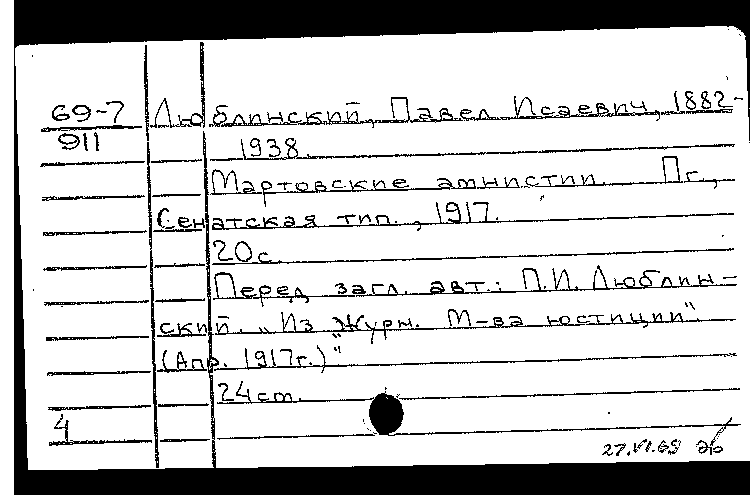 69-7 Люблинский, Павел Исаевич, 1882-
911 1938.
Мартовские амнистии. Пг.,
Сенатская тип., 1917.
20с.
Перед загл. авт.: П.И. Люблин-
ский. „Из „Журн. М-ва юстиции"
(Апр. 1917г.)"
24cm.
4
27.VI.69